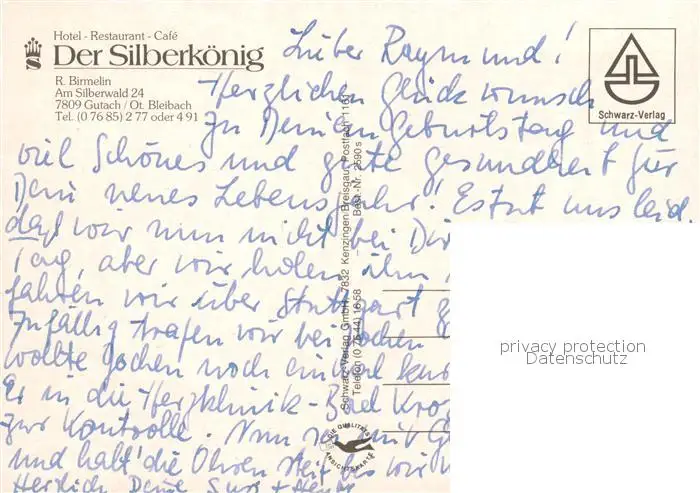 Hotel - Restaurant - Café
Der Silberkönig
R. Birmelin
Am Silberwald 24
7809 Gutach / Ot. Bleibach
Tel. (0 76 85) 2 77 oder 4 91
Schwarz-Verlag
Lieber Raymund!
Herzlichen Glückwunsch
zu Deinem Geburtstag und
viel Schönes und gute Gesundheit für
Dein neues Lebensjahr! Es tut uns leid,
daß wir nun nicht bei Dir
Tag, aber wir holen ihn
fahren wir über Stuttgart
Zufällig trafen wir bei Jochen
wollte Jochen noch einmal
Er in die Herzklinik - Bad
zur Kontrolle. Nun sei
und halt' die Ohren steif bis wir
Herzlich Deine
Schwarz-Verlag GmbH, 7832 Kenzingen/Breisgau, Postfach 1161
Telefon (0 76 44) 16 58
Best.-Nr. 2590 s
DIE QUALITÄTS
ANSICHTSKARTE
privacy protection
Datenschutz